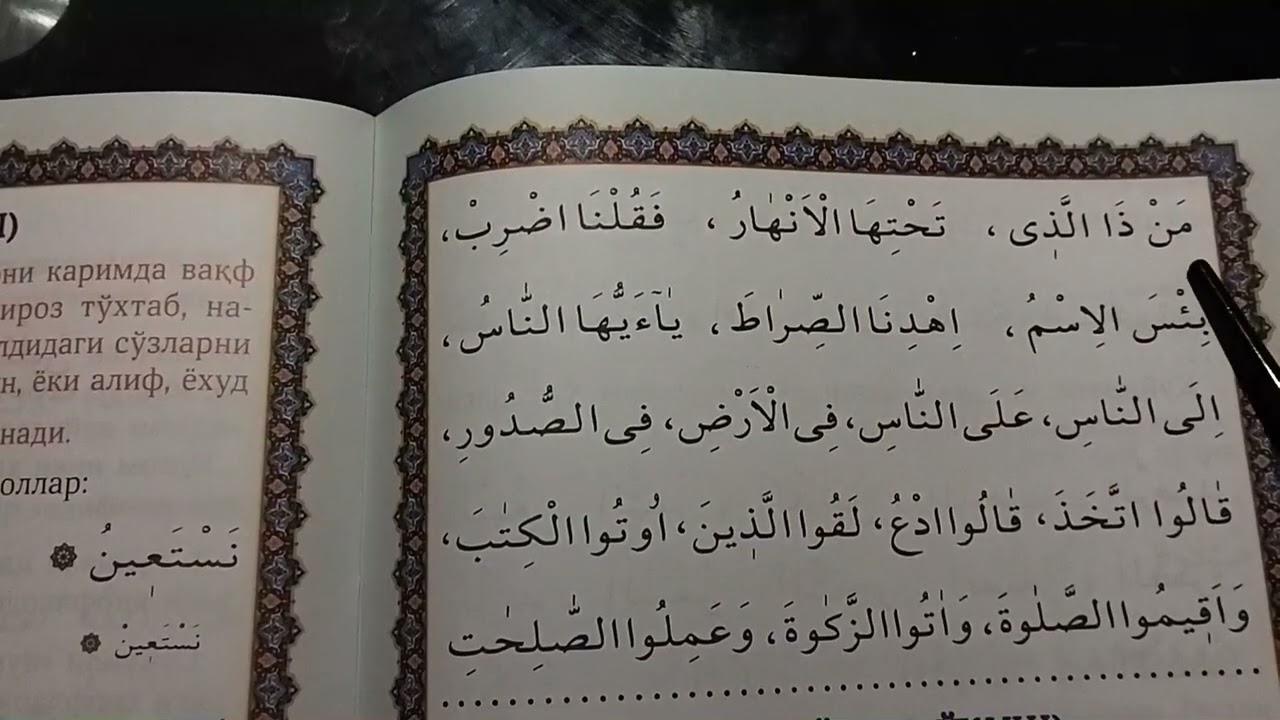 ни каримда вақф
ироз тўхтаб, на-
лдидаги сўзларни
н, ёки алиф, ёхуд
нади.
оллар:
نَسْتَع۪ينُ ۞
نَسْتَع۪ينْ ۞
مَنْ ذَا الَّذ۪ى ، تَحْتِهَا الْاَنْهٰارُ ، فَقُلْنَا اضْرِبْ،
بِئْسَ الِاسْمُ ، اِهْدِنَا الصِّرٰاطَ ، يٰٓاءَيُّهَا النّٰاسُ،
اِلَى النّٰاسِ، عَلَى النّٰاسِ، فِى الْاَرْضِ، فِى الصُّدُورِ،
قٰالُوا اتَّخَذَ، قٰالُوا ادْعُ، لَقُوا الَّذ۪ينَ، اُوتُوا الْكِتٰبَ،
وَاَق۪يمُوا الصَّلٰوةَ، وَاٰتُوا الزَّكٰوةَ، وَعَمِلُوا الصّٰلِحٰتِ